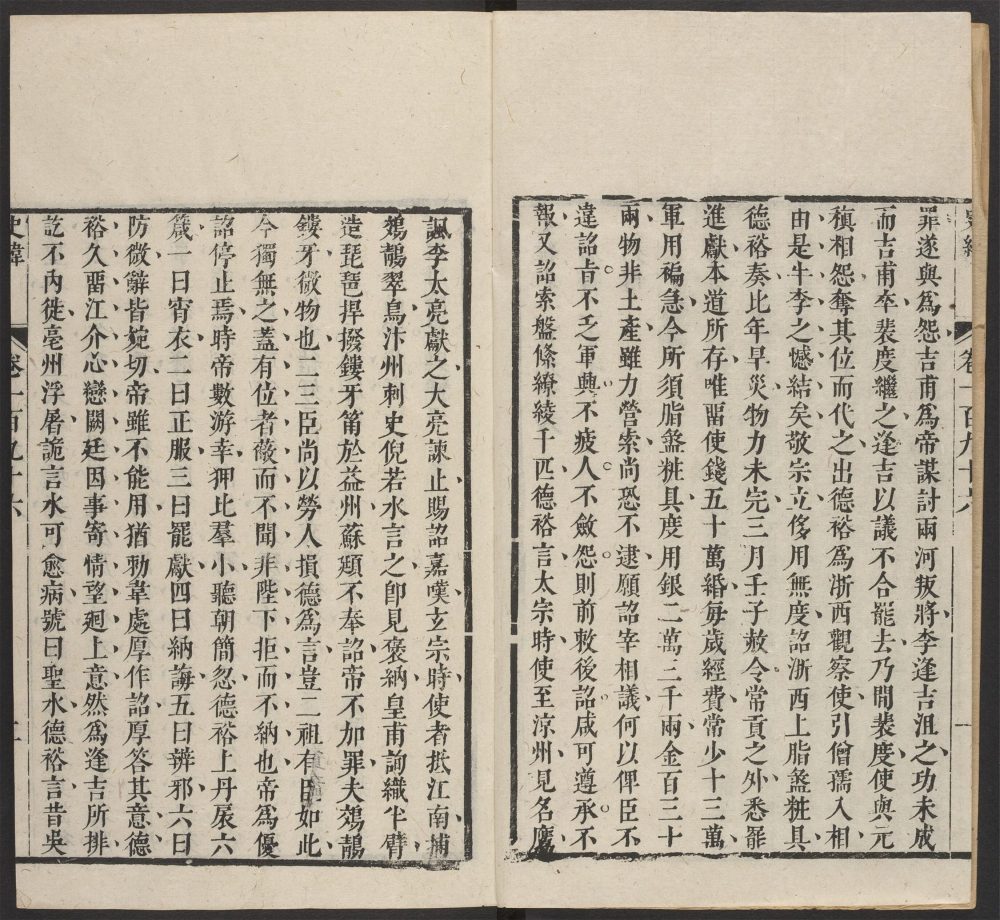 史緯
卷一百九十六
一
罪遂與爲怨吉甫爲帝謀討兩河叛將李逢吉沮之功未成
而吉甫卒裴度繼之逢吉以議不合罷去乃閒裴度使與元
稹相怨奪其位而代之出德裕爲浙西觀察使引僧孺入相
由是牛李之憾結矣敬宗立侈用無度詔浙西上脂盝粧具
德裕奏比年旱災物力未完三月壬子赦令常貢之外悉罷
進獻本道所存唯畱使錢五十萬緡每歲經費常少十三萬
軍用褊急今所須脂盝粧具度用銀二萬三千兩金百三十
兩物非土產雖力營索尚恐不逮願詔宰相議何以俾臣不
違詔旨不乏軍興不疲人不斂怨則前敕後詔咸可遵承不
報又詔索盤絛繚綾千匹德裕言太宗時使至涼州見名鷹
諷李大亮獻之大亮諫止賜詔嘉嘆玄宗時使者抵江南捕
鵁鶄翠鳥汴州刺史倪若水言之卽見褒納皇甫詢織半臂
造琵琶捍撥鏤牙筩於益州蘇頲不奉詔帝不加罪夫鵁鶄
鏤牙微物也二三臣尚以勞人損德爲言豈二祖有臣如此
今獨無之蓋有位者蔽而不聞非陛下拒而不納也帝爲優
詔停止焉時帝數游幸狎比羣小聽朝簡忽德裕上丹扆六
箴一曰宵衣二曰正服三曰罷獻四曰納誨五曰辨邪六曰
防微辭皆婉切帝雖不能用猶勅韋處厚作詔厚答其意德
裕久畱江介心戀闕廷因事寄情望廻上意然爲逢吉所排
訖不內徙亳州浮屠詭言水可愈病號曰聖水德裕言昔吳
史緯
卷一百九十六
二